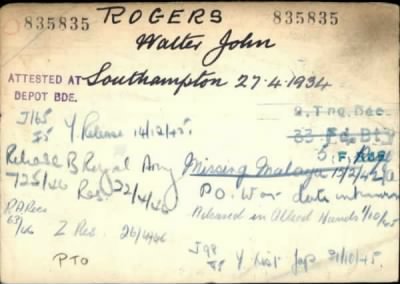 835835 ROGERS 835835
Walter John
ATTESTED AT Southampton 27.4.1934
DEPOT BDE.
J/65 Y Release 14/12/45.
Release B Royal Army Missing Malaya
725/46 Res. 22/4/46 P.O. War date unknown
RARes Released in Allied Hands 1/10/45
63/46 Z Res. 26/4/46
J98 Y List Jap 31/10/45.
PTO